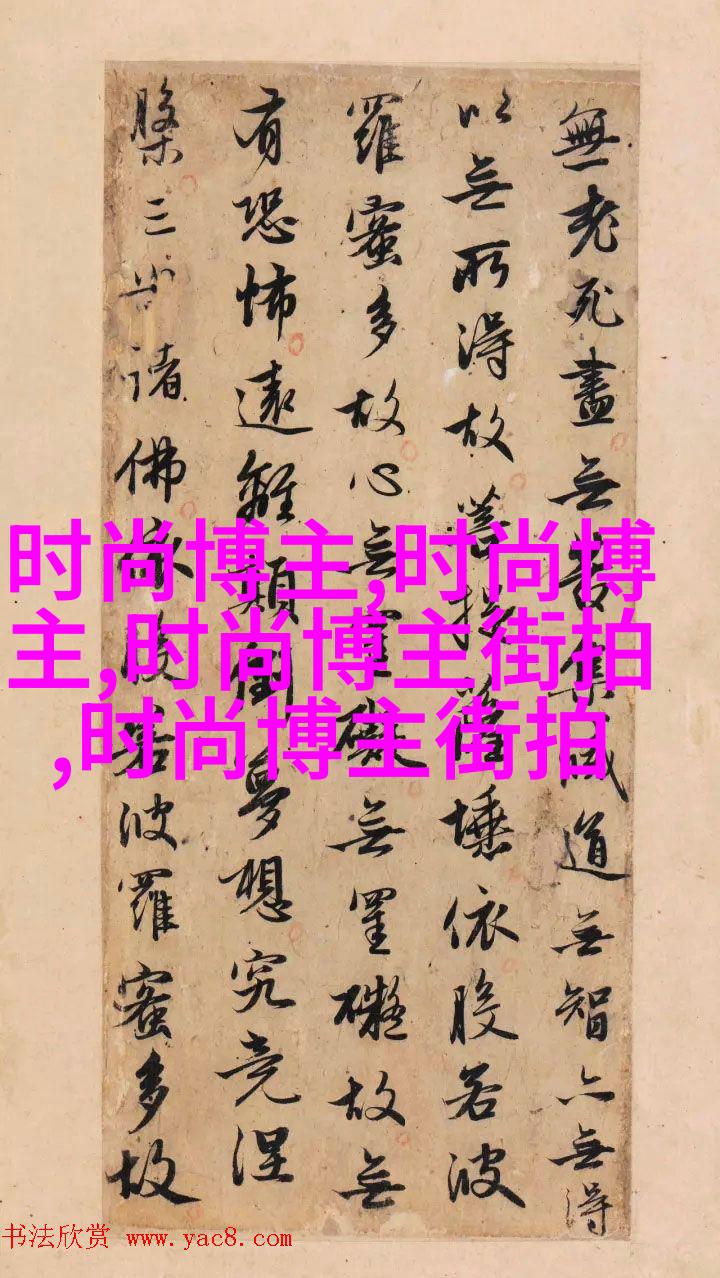 無老死盡无苦集滅道无智亦无得
以无所得故菩提薩埵依般若波
羅蜜多故心无罣礙无罣礙故无
有恐怖遠離顛倒夢想究竟涅
槃三世諸佛依般若波羅蜜多故
时尚博主,时尚博
主,时尚博主街拍
,时尚博主街拍
书法欣赏 www.yac8.com